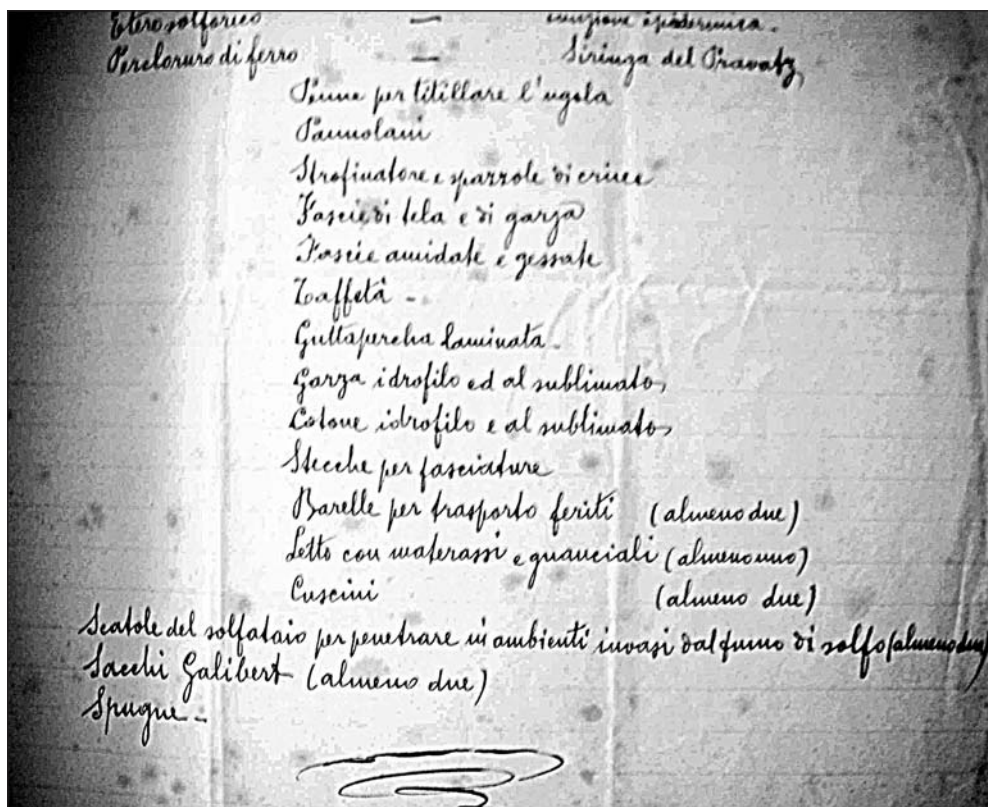 Etere solforico — iniezione epidermica.
Percloruro di ferro — Siringa del Pravatz,
Piume per titillare l'ugola
Pannolani
Strofinatore e spazzole di crine
Fascie di tela e di garza
Fascie amidate e gessate
Taffetà -
Guttapercha laminata.
Garza idrofilo ed al sublimato,
Cotone idrofilo e al sublimato,
Stecche per fasciature
Barelle per trasporto feriti (almeno due)
Letto con materassi e guanciali (almeno uno)
Cuscini (almeno due)
Scatole del solfataio per penetrare in ambienti invasi dal fumo di solfo (almeno due)
Sacchi Galibert (almeno due)
Spugne -